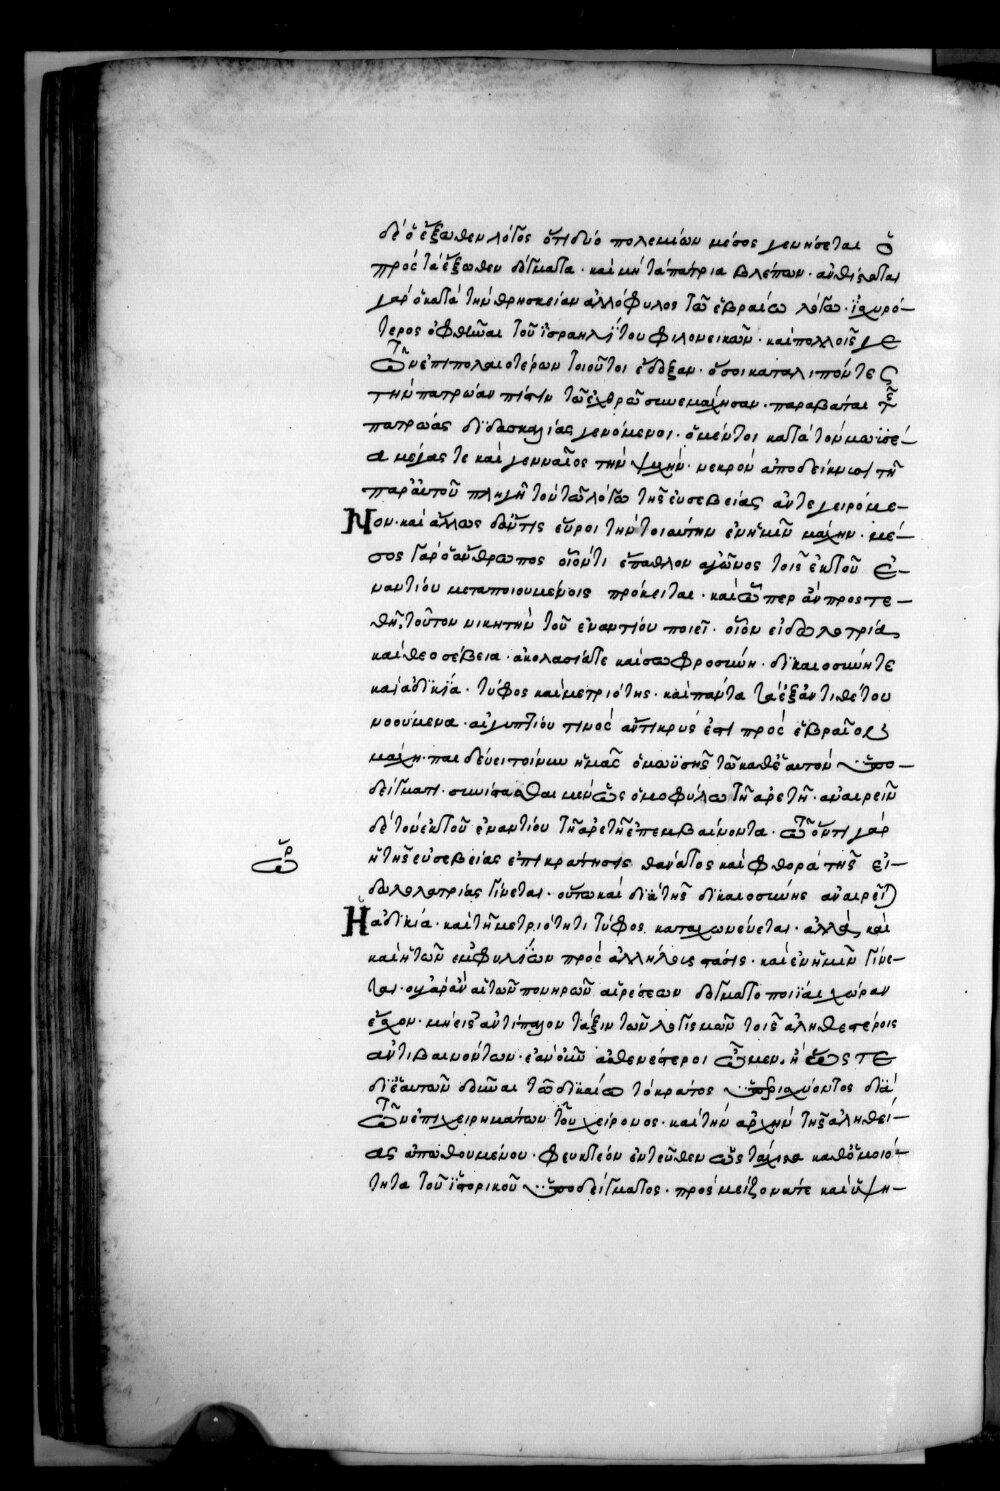 δὲ ὁ ἔξωθεν λόγος ὅτι δύο πολεμίων μέσος γενήσεται ὁ
πρὸς τὰ ἔξωθεν δόγματα · καὶ μὴ τὰ πάτρια βλέπων · ἀνθίσταται
γὰρ ὁ κατὰ τὴν θρησκείαν ἀλλόφυλος τῶ ἑβραίω λόγω · ἰσχυρό-
τερος ὀφθῆναι τοῦ ἰσραηλίτου φιλονεικῶν · καὶ πολλοῖς γε
τῶν ἐπιπολαιοτέρων τοιοῦτοι ἔδοξαν · ὅσοι καταλιπόντες
τὴν πατρώαν πίστιν τῶ ἐχθρῶ συνεμάχησαν · παραβάται τῆς
πατρώας διδασκαλίας γενόμενοι · ὁ μέντοι κατὰ τὸν μωϋσέ-
α μέγας τε καὶ γενναῖος τὴν ψυχὴν · νεκρὸν ἀποδείκνυσι τῇ
παρ' αὐτοῦ πληγῇ τὸν τῶ λόγω τῆς εὐσεβείας ἀντεγειρόμε-
Νον · καὶ ἄλλως δ' ἄν τις εὕροι τὴν τοιαύτην ἐν ἡμῖν μάχην · μέ-
σος γὰρ ὁ ἄνθρωπος οἷόν τι ἔπαθλον ἀγῶνος τοῖς ἐκ τοῦ ἐ-
ναντίου μεταποιουμένοις πρόκειται · καὶ ὧπερ ἂν προστε-
θῇ, τοῦτον νικητὴν τοῦ ἐναντίου ποιεῖ · οἷον εἰδωλατρία
καὶ θεοσέβεια · ἀκολασία τε καὶ σωφροσύνη · δικαιοσύνη τε
καὶ ἀδικία · τύφος καὶ μετριότης · καὶ πάντα τὰ ἐξ ἀντιθέτου
νοούμενα · αἰγυπτίου τινὸς ἄντικρύς ἐστι πρὸς ἑβραῖον
μάχη · παιδεύει τοίνυν ἡμᾶς ὁ μωϋσῆς τῶ καθ' ἑαυτὸν ὑπο-
δείγματι · συνίστασθαι μὲν ὡς ὁμοφύλω τῇ ἀρετῇ · ἀναιρεῖν
δὲ τὸν ἐκ τοῦ ἐναντίου τῇ ἀρετῇ ἐπεμβαίνοντα · τῶ ὄντι γὰρ
ἡ τῆς εὐσεβείας ἐπικράτησις θάνατος καὶ φθορὰ τῆς εἰ-
δωλολατρίας γίνεται · οὕτω καὶ διὰ τῆς δικαιοσύνης ἀναιρεῖται
Ἡ ἀδικία · καὶ τῇ μετριότητι τύφος καταχωνεύεται · ἀλλὰ καὶ
καὶ ἡ τῶν ἐμφυλίων πρὸς ἀλλήλους στάσις · καὶ ἐν ἡμῖν γίνε-
ται · οὐ γὰρ ἂν αἱ τῶν πονηρῶν αἱρέσεων δογματοποιΐαι χώραν
ἔσχον · μὴ εἰς ἀντίπαλον τάξιν τῶν λογισμῶν τοῖς ἀληθεστέροις
ἀντιβαινόντων · ἐὰν οὖν ἀσθενέστεροι ὦμεν · ἢ ὥστε
δι' ἑαυτῶν δοῦναι τῶ δικαίω τὸ κράτος ὑπερισχύοντος διὰ
τῶν ἐπιχειρημάτων τοῦ χείρονος · καὶ τὴν ἀρχὴν τῆς ἀληθεί-
ας ἀπωθουμένου · φευκτέον ἐντεῦθεν ὡς τάχιστα καθ' ὁμοιό-
τητα τοῦ ἱστορικοῦ ὑποδείγματος · πρὸς μείζονά τε καὶ ὑψη-